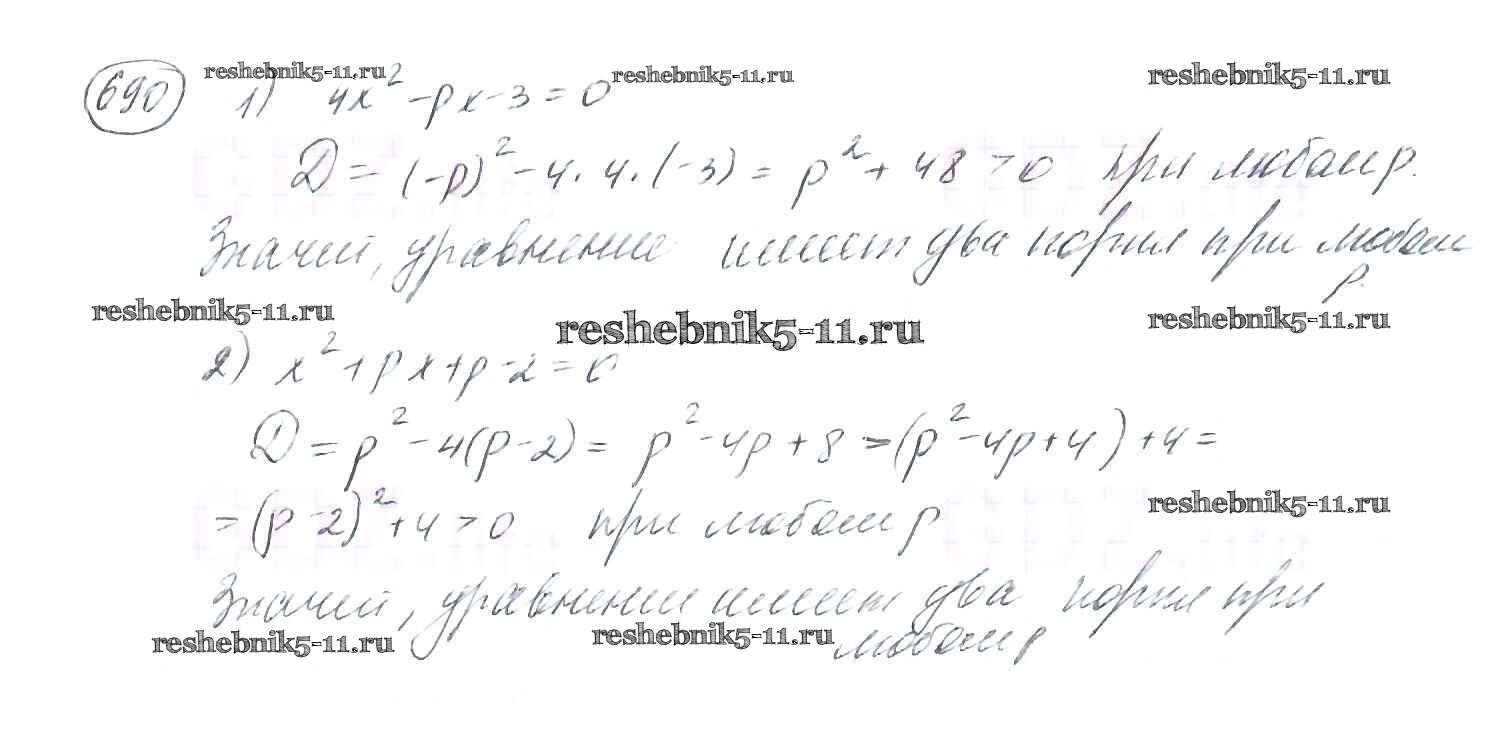 reshebnik5-11.ru reshebnik5-11.ru reshebnik5-11.ru
690 1) 4x² - px - 3 = 0
D = (-p)² - 4 · 4 · (-3) = p² + 48 > 0 при любом p.
Значит, уравнение имеет два корня при любом
p.
reshebnik5-11.ru reshebnik5-11.ru reshebnik5-11.ru
2) x² + px + p - 2 = 0
D = p² - 4(p - 2) = p² - 4p + 8 = (p² - 4p + 4) + 4 =
= (p - 2)² + 4 > 0 при любом p
reshebnik5-11.ru
Значит, уравнение имеет два корня при
любом p
reshebnik5-11.ru reshebnik5-11.ru